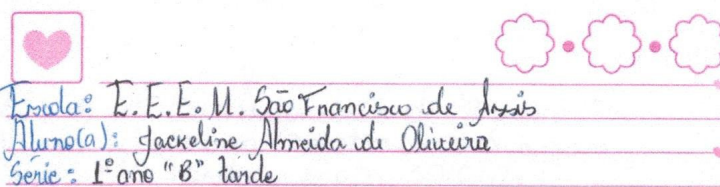 Escola: E.E.E.M. São Francisco de Assis
Aluno(a): Jackeline Almeida de Oliveira
Série: 1º ano "B" tarde